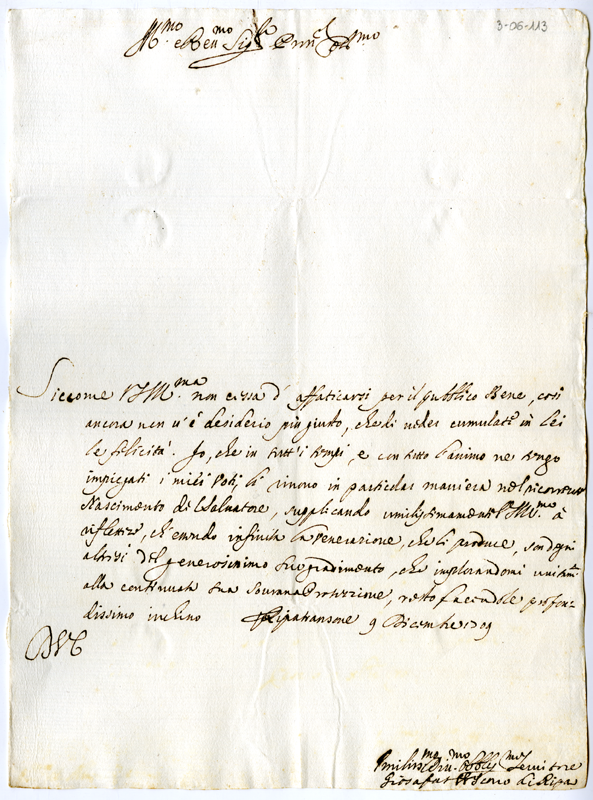 3-06-113
Ill.mo e Rev.mo Sig.r Pron.e Col.mo
Siccome V.S.Ill.ma non cessa d'affaticarsi per il publico Bene, così
ancora non v'è desiderio più giusto, che di veder cumulate in Lei
le felicità. Io, che in tutt'i tempi, e con tutto l'animo ne tengo
impiegati i miei Voti, li rinovo in particolar maniera nel ricorrente
Nascimento del Salvatore, supplicando umilissimamente V.S.Ill.ma à
riflettere, ch'essendo infinita la Venerazione, che li produce, son degni
altresì del generosissimo suo gradimento, che implorandomi unitam.te
alla continuata sua sovrana Protezzione, resto facendole profon-
dissimo inchino Ripatransone 9 Dicembre 1709
DVS
Umiliss.mo Div.mo Obblig.mo Servitore
Giosafat di Ripa